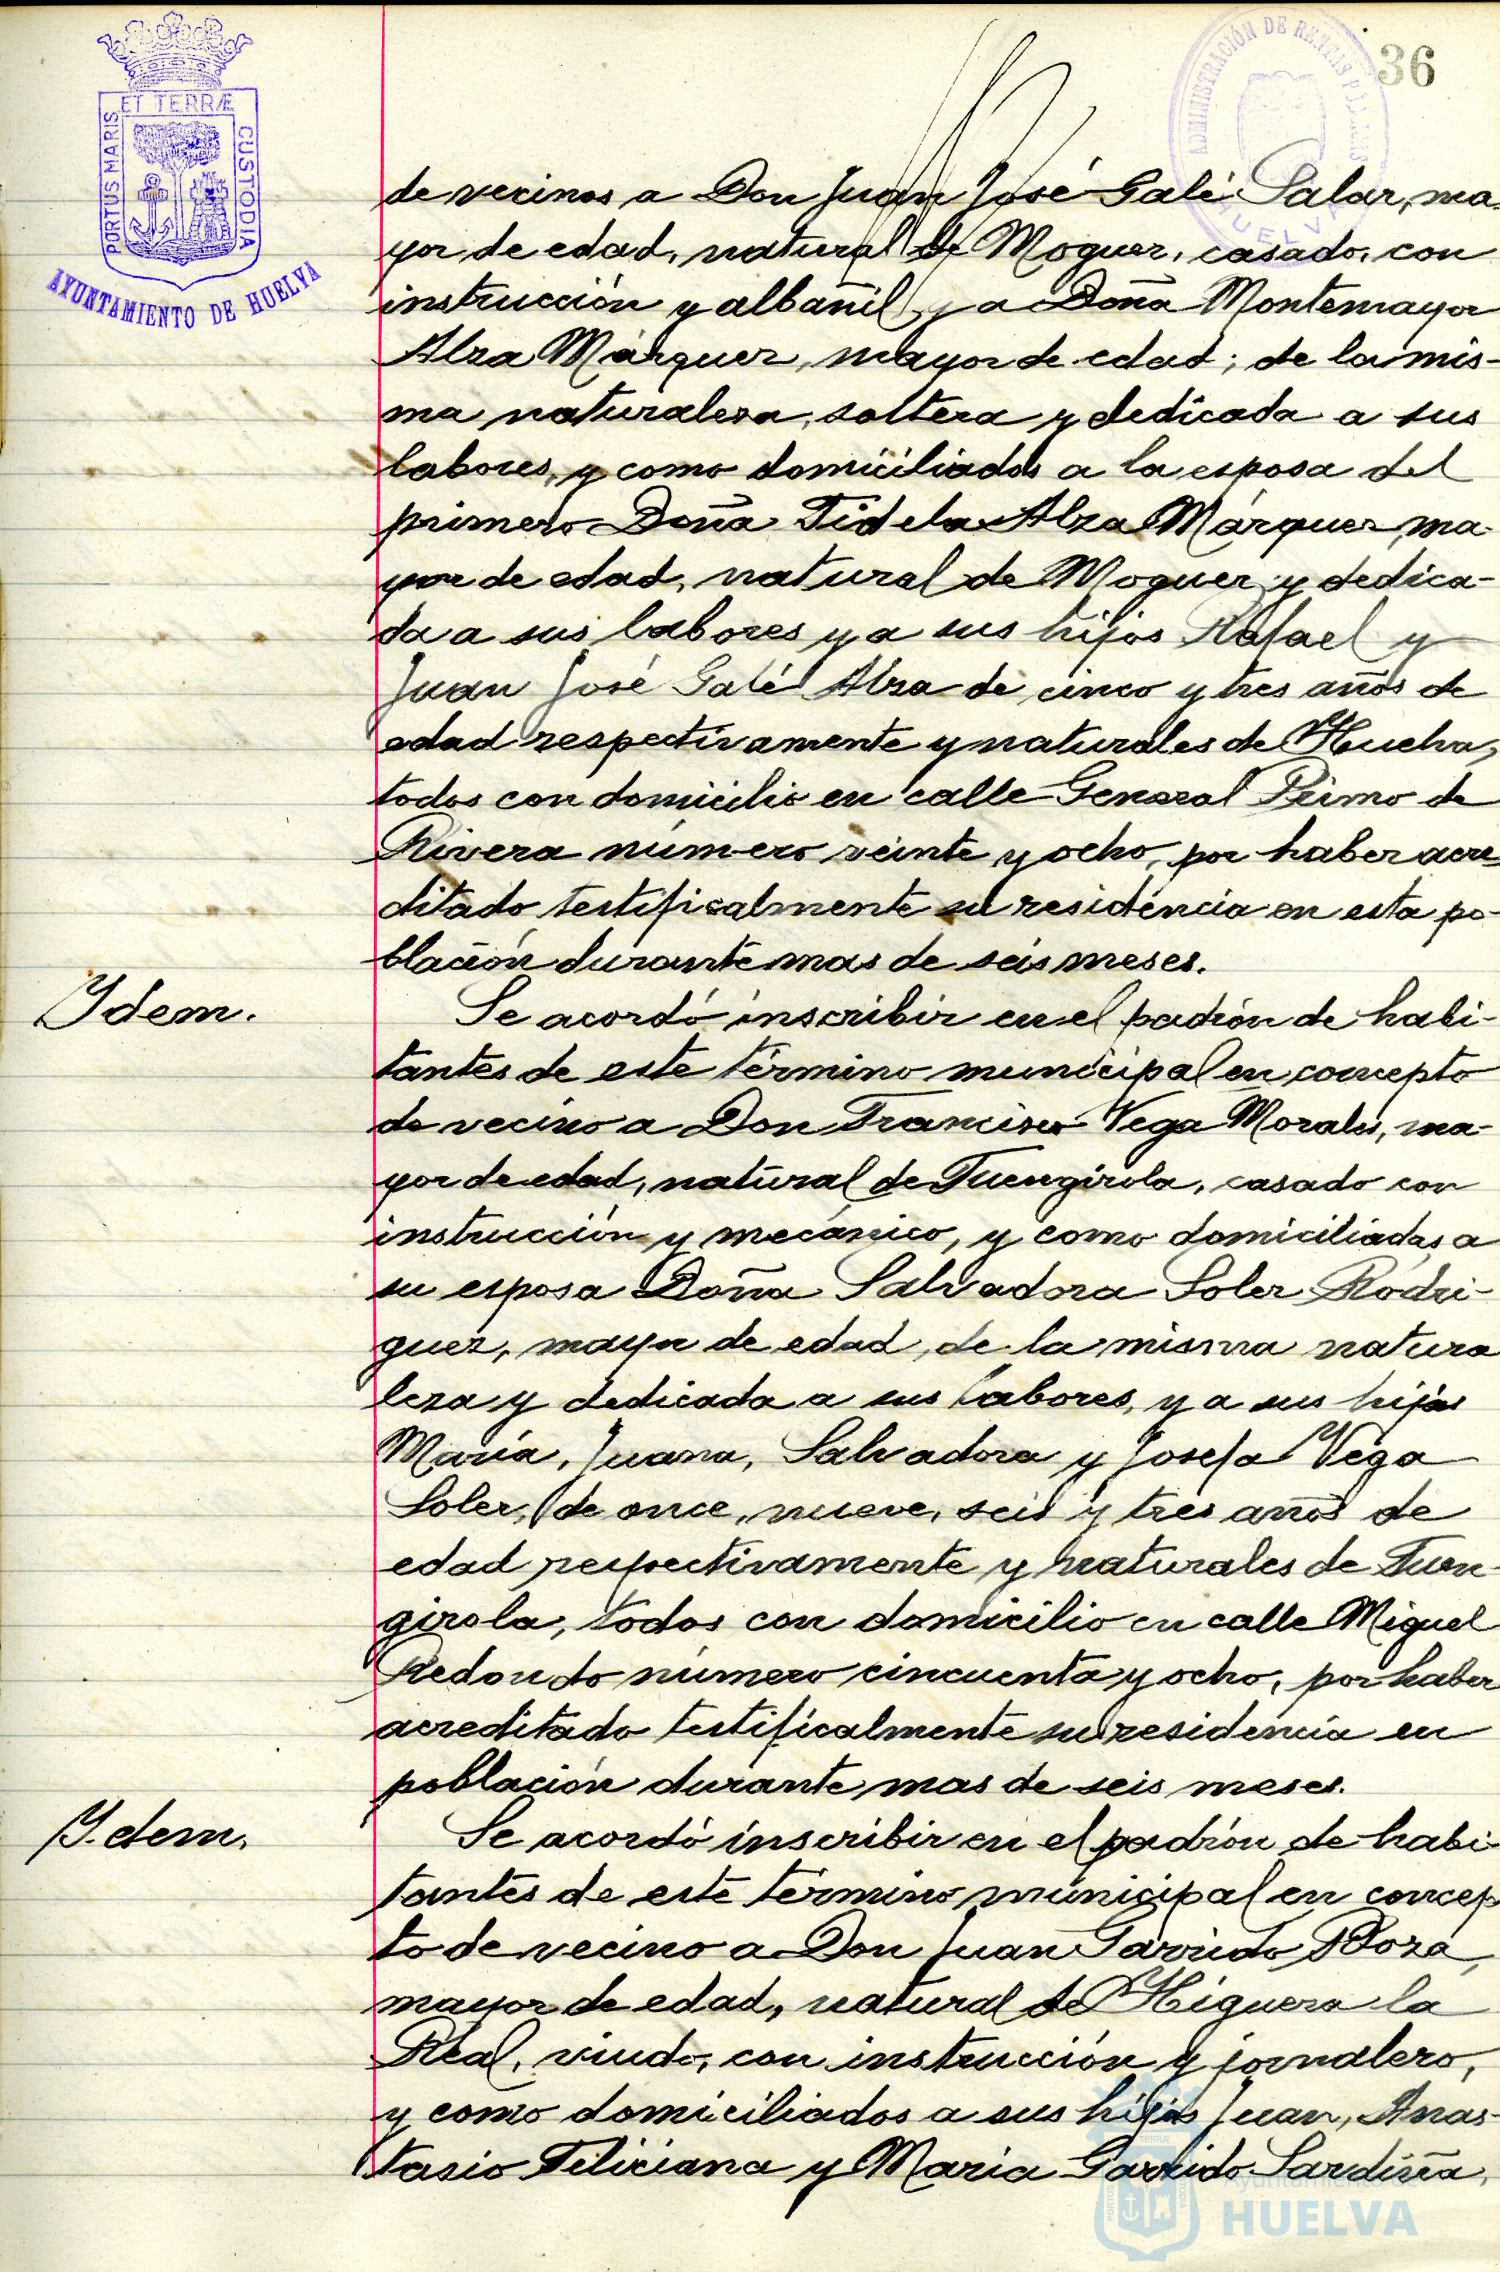 ET TERRÆ
PORTUS MARIS
CUSTODIA
AYUNTAMIENTO DE HUELVA
ADMINISTRACIÓN DE RENTAS PÚBLICAS
HUELVA
36
de vecinos a Don Juan José Galé Salar, ma-
yor de edad, natural de Moguer, casado, con
instrucción y albañil y a Doña Montemayor
Alza Márquez, mayor de edad, de la mis-
ma naturaleza, soltera y dedicada a sus
labores, y como domiciliados a la esposa del
primero Doña Fidela Alza Márquez, ma-
yor de edad, natural de Moguer y dedica-
da a sus labores y a sus hijos Rafael y
Juan José Galé Alza de cinco y tres años de
edad respectivamente y naturales de Huelva,
todos con domicilio en calle General Primo de
Rivera número veinte y ocho, por haber acre-
ditado testificalmente su residencia en esta po-
blación durante mas de seis meses.
Ydem.
Se acordó inscribir en el padrón de habi-
tantes de este término municipal en concepto
de vecino a Don Francisco Vega Morales, ma-
yor de edad, natural de Fuengirola, casado con
instrucción y mecánico, y como domiciliadas a
su esposa Doña Salvadora Soler Rodri-
guez, mayor de edad, de la misma natura
leza y dedicada a sus labores, y a sus hijas
María, Juana, Salvadora y Josefa Vega
Soler, de once, nueve, seis y tres años de
edad respectivamente y naturales de Fuen-
girola, todos con domicilio en calle Miguel
Redondo número cincuenta y ocho, por haber
acreditado testificalmente su residencia en
población durante mas de seis meses.
Ydem.
Se acordó inscribir en el padrón de habi-
tantes de este término municipal en concep
to de vecino a Don Juan Garrido Boza,
mayor de edad, natural de Higuera la
Real, viudo, con instrucción y jornalero,
y como domiciliados a sus hijos Juan, Anas-
tasio Feliciana y Maria Garrido Sardiña,
Ayuntamiento de
HUELVA